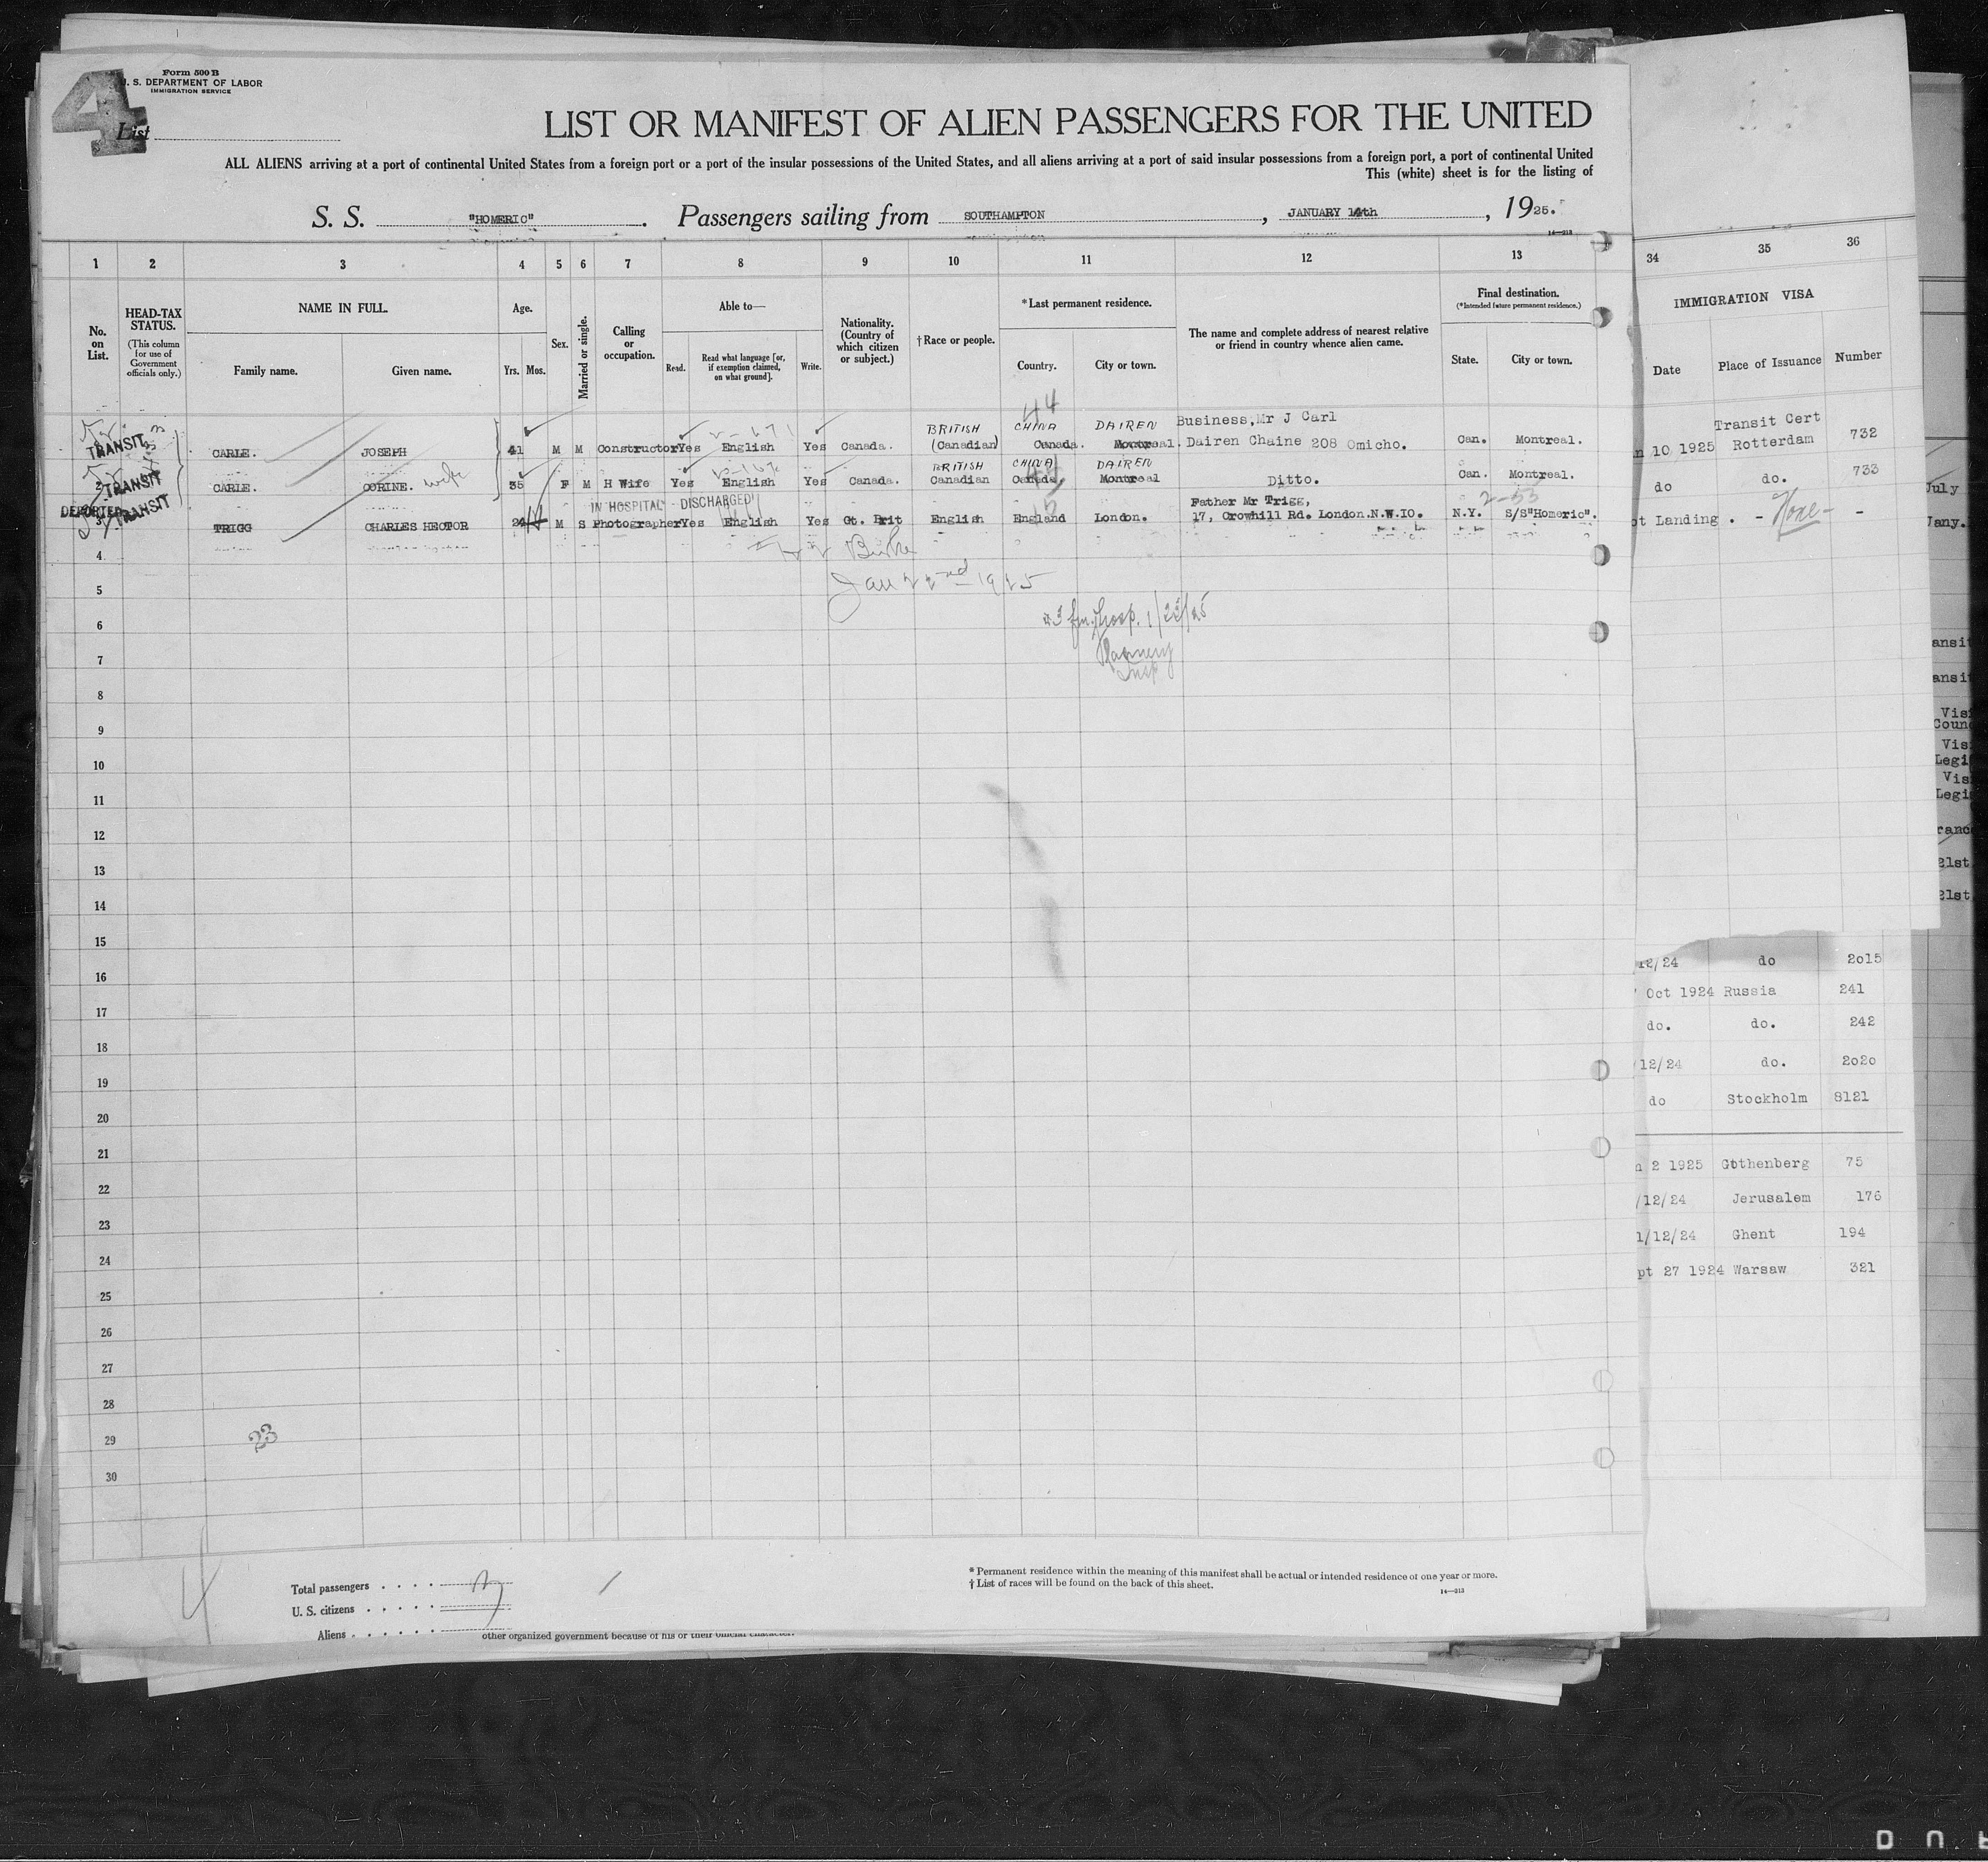 4
Form 500 B
U. S. DEPARTMENT OF LABOR
IMMIGRATION SERVICE
List
LIST OR MANIFEST OF ALIEN PASSENGERS FOR THE UNITED
ALL ALIENS arriving at a port of continental United States from a foreign port or a port of the insular possessions of the United States, and all aliens arriving at a port of said insular possessions from a foreign port, a port of continental United
This (white) sheet is for the listing of
S. S. "HOMERIC". Passengers sailing from SOUTHAMPTON, JANUARY 14th, 1925.
14—313
1 2 3 4 5 6 7 8 9 10 11 12 13
No. on List.
HEAD-TAX STATUS.
(This column for use of Government officials only.)
NAME IN FULL.
Family name. Given name.
Age.
Yrs. Mos.
Sex.
Married or single.
Calling or occupation.
Able to—
Read. Read what language [or, if exemption claimed, on what ground]. Write.
Nationality. (Country of which citizen or subject.)
†Race or people.
*Last permanent residence.
Country. City or town.
The name and complete address of nearest relative or friend in country whence alien came.
Final destination.
(*Intended future permanent residence.)
State. City or town.
34 35 36
IMMIGRATION VISA
Date Place of Issuance Number
44
BRITISH CHINA DAIREN Business,Mr J Carl
TRANSIT CARLE. JOSEPH 41 M M Constructor Yes English Yes Canada. (Canadian) Canada. Montreal. Dairen Chaine 208 Omicho. Can. Montreal.
Transit Cert
n 10 1925 Rotterdam 732
BRITISH CHINA DAIREN
2 TRANSIT CARLE. CORINE. wife 35 F M H Wife Yes English Yes Canada. Canadian Canada, Montreal Ditto. Can. Montreal.
do do. 733
IN HOSPITAL - DISCHARGED
Father Mr Trigg, 2-53
DEPORTED
3 TRANSIT TRIGG CHARLES HECTOR 24 M S Photographer Yes English Yes Gt. Brit English England London. 17, Crowhill Rd. London.N.W.IO. N.Y. S/S"Homeric".
ot Landing . - None - -
July
Jany.
4
5
Jan 22nd 1925
6
1/22/25
7
Insp
8
9
10
11
12
13
14
15
16
17
18
19
20
21
22
23
24
25
26
27
28
29
30
23
12/24 do 2015
Oct 1924 Russia 241
do. do. 242
/12/24 do. 2020
do Stockholm 8121
n 2 1925 Gothenberg 75
/12/24 Jerusalem 176
1/12/24 Ghent 194
pt 27 1924 Warsaw 321
4
Total passengers
U. S. citizens
Aliens
other organized government because of his or their official character.
* Permanent residence within the meaning of this manifest shall be actual or intended residence of one year or more.
† List of races will be found on the back of this sheet.
14—313